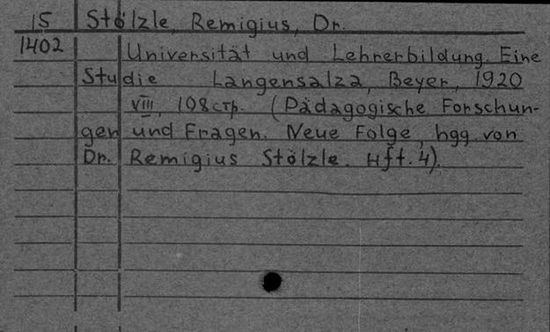 15 Stölzle, Remigius, Dr.
1402 Universität und Lehrerbildung. Eine
Studie Langensalza, Beyer, 1920
VIII, 108 стр. (Pädagogische Forschun-
gen und Fragen. Neue Folge, hgg von
Dr. Remigius Stölzle. Hft. 4).